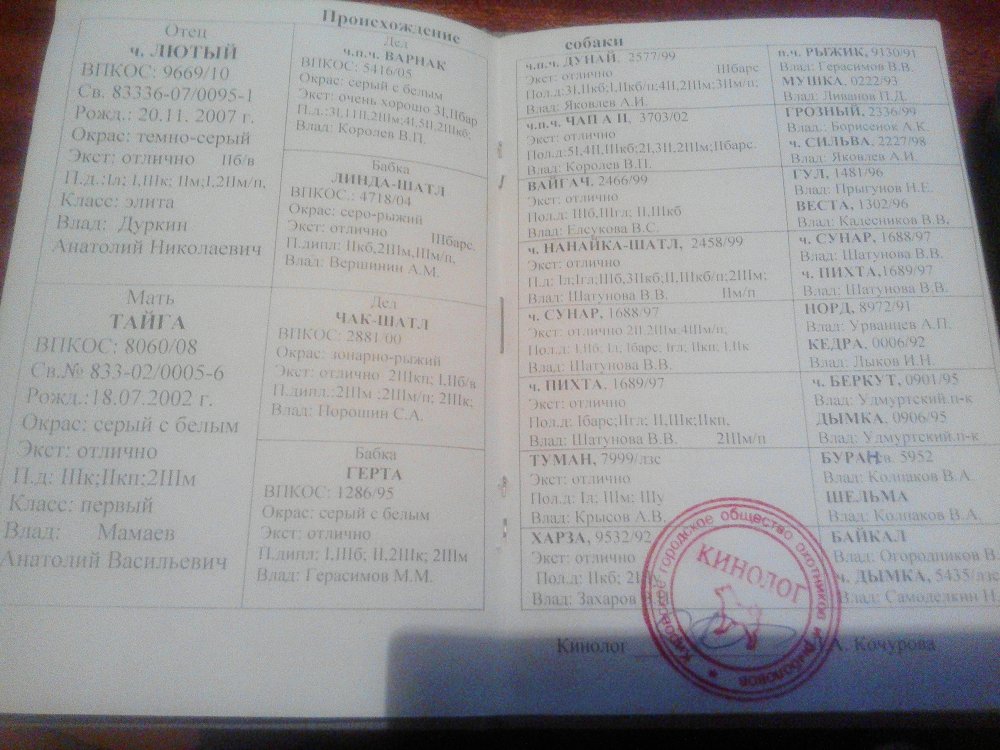 Происхождение
Отец
ч. ЛЮТЫЙ
ВПКОС: 9669/10
Св. 83336-07/0095-1
Рожд.: 20.11. 2007 г.
Окрас: темно-серый
Экст: отлично IIб/в
П.д.:Iл; I,IIIк; IIм;I,2IIм/п,
Класс: элита
Влад: Дуркин
Анатолий Николаевич
Мать
ТАЙГА
ВПКОС: 8060/08
Св.№ 833-02/0005-6
Рожд.:18.07.2002 г.
Окрас: серый с белым
Экст: отлично
П.д: IIIк;IIкп;2IIIм
Класс: первый
Влад: Мамаев
Анатолий Васильевич
Дед
ч.п.ч. ВАРНАК
ВПКОС: 5416/05
Окрас: серый с белым
Экст: очень хорошо
Влад: Королев В.П.
Бабка
ЛИНДА-ШАТЛ
ВПКОС.: 4718/04
Окрас: серо-рыжий
Экст: отлично IIIбарс.
П.дипл: IIкб,2IIIм,IIIм/п,
Влад: Вершинин А.М.
Дед
ЧАК-ШАТЛ
ВПКОС: 2881/00
Окрас: зонарно-рыжий
Экст: отлично 2IIIкп; I,IIб/в
П.дипл.:2IIIм ;2IIIм/п; 2IIIк;
Влад: Порошин С.А.
Бабка
ГЕРТА
ВПКОС: 1286/95
Окрас: серый с белым
Экст: отлично
П.дипл: I,IIIб; II,2IIIк; 2IIIм
Влад: Герасимов М.М.
собаки
ч.п.ч. ДУНАЙ, 2577/99
Экст: отлично IIIбарс
Пол.д: 3I,IIкб;I,IIкб/п;4II,2IIIм;3IIм/п;
Влад: Яковлев А.И.
ч.п.ч. ЧАП А II, 3703/02
Экст: отлично
Пол.д: 5I,4II,IIIкб;2I,3II,2IIIм;IIбарс.
Влад: Королев В.П.
ВАЙГАЧ, 2466/99
Экст: отлично
Пол.д: IIIб,IIIгл; II,IIIкб
Влад: Елсукова В.С.
ч. НАНАЙКА-ШАТЛ, 2458/99
Экст: отлично
П.д: Iл;Iгл;IIIб,3IIкб;II,IIIкб/п;2IIIм;
Влад: Шатунова В.В. IIм/п
ч. СУНАР, 1688/97
Экст: отлично 2II,2IIIм;4IIIм/п;
Пол.д: I,IIб; Iл; Iбарс; Iгл; IIкп; I,IIк
Влад: Шатунова В.В.
ч. ПИХТА, 1689/97
Экст: отлично
Пол.д: Iбарс;IIгл; II,IIIк;IIкп,
Влад: Шатунова В.В. 2IIIм/п
ТУМАН, 7999/лзс
Экст: отлично
Пол.д: Iд; IIIм; IIIу
Влад: Крысов А.В.
ХАРЗА, 9532/92
Экст: отлично
Пол.д: IIкб;
Влад: Захаров
п.ч. РЫЖИК, 9130/91
Влад: Герасимов В.В.
МУШКА, 0222/93
Влад: Ливанов П.Д.
ГРОЗНЫЙ, 2336/99
Влад.: Борисенок А.К.
ч. СИЛЬВА, 2227/98
Влад: Яковлев А.И.
ГУЛ, 1481/96
Влад: Прыгунов Н.Е.
ВЕСТА, 1302/96
Влад: Калесников В.В.
ч. СУНАР, 1688/97
Влад: Шатунова В.В.
ч. ПИХТА,1689/97
Влад: Шатунова В.В.
НОРД, 8972/91
Влад: Урванцев А.П.
КЕДРА, 0006/92
Влад: Лыков И.Н.
ч. БЕРКУТ, 0901/95
Влад: Удмуртский.п-к
ДЫМКА, 0906/95
Влад: Удмуртский.п-к
БУРАН 5952
Влад: Колпаков В.А.
ШЕЛЬМА
Влад: Колпаков В.А.
БАЙКАЛ
Влад: Огородников В.
ч. ДЫМКА, 5435/лзс
Влад: Самоделкин Н.
Кировское городское общество охотников и рыболовов
КИНОЛОГ
Кинолог А. Кочурова